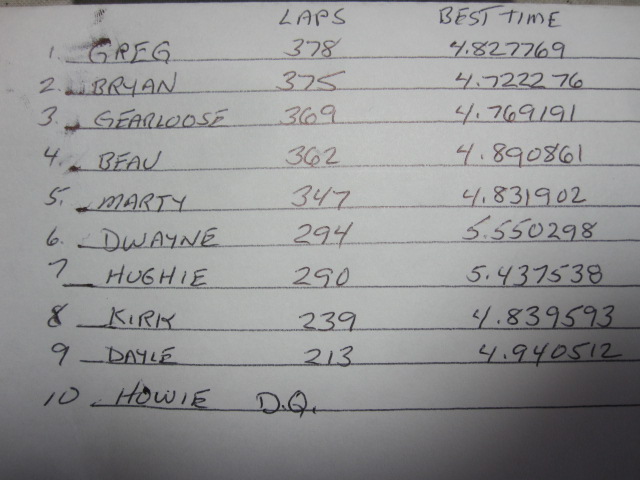 LAPS BEST TIME
1. GREG 378 4.827769
2. BRYAN 375 4.722276
3. GEARLOOSE 369 4.769191
4. BEAU 362 4.890861
5. MARTY 347 4.831902
6. DWAYNE 294 5.550298
7 HUGHIE 290 5.437538
8 KIRK 239 4.839593
9 DAYLE 213 4.940512
10 HOWIE D.Q.